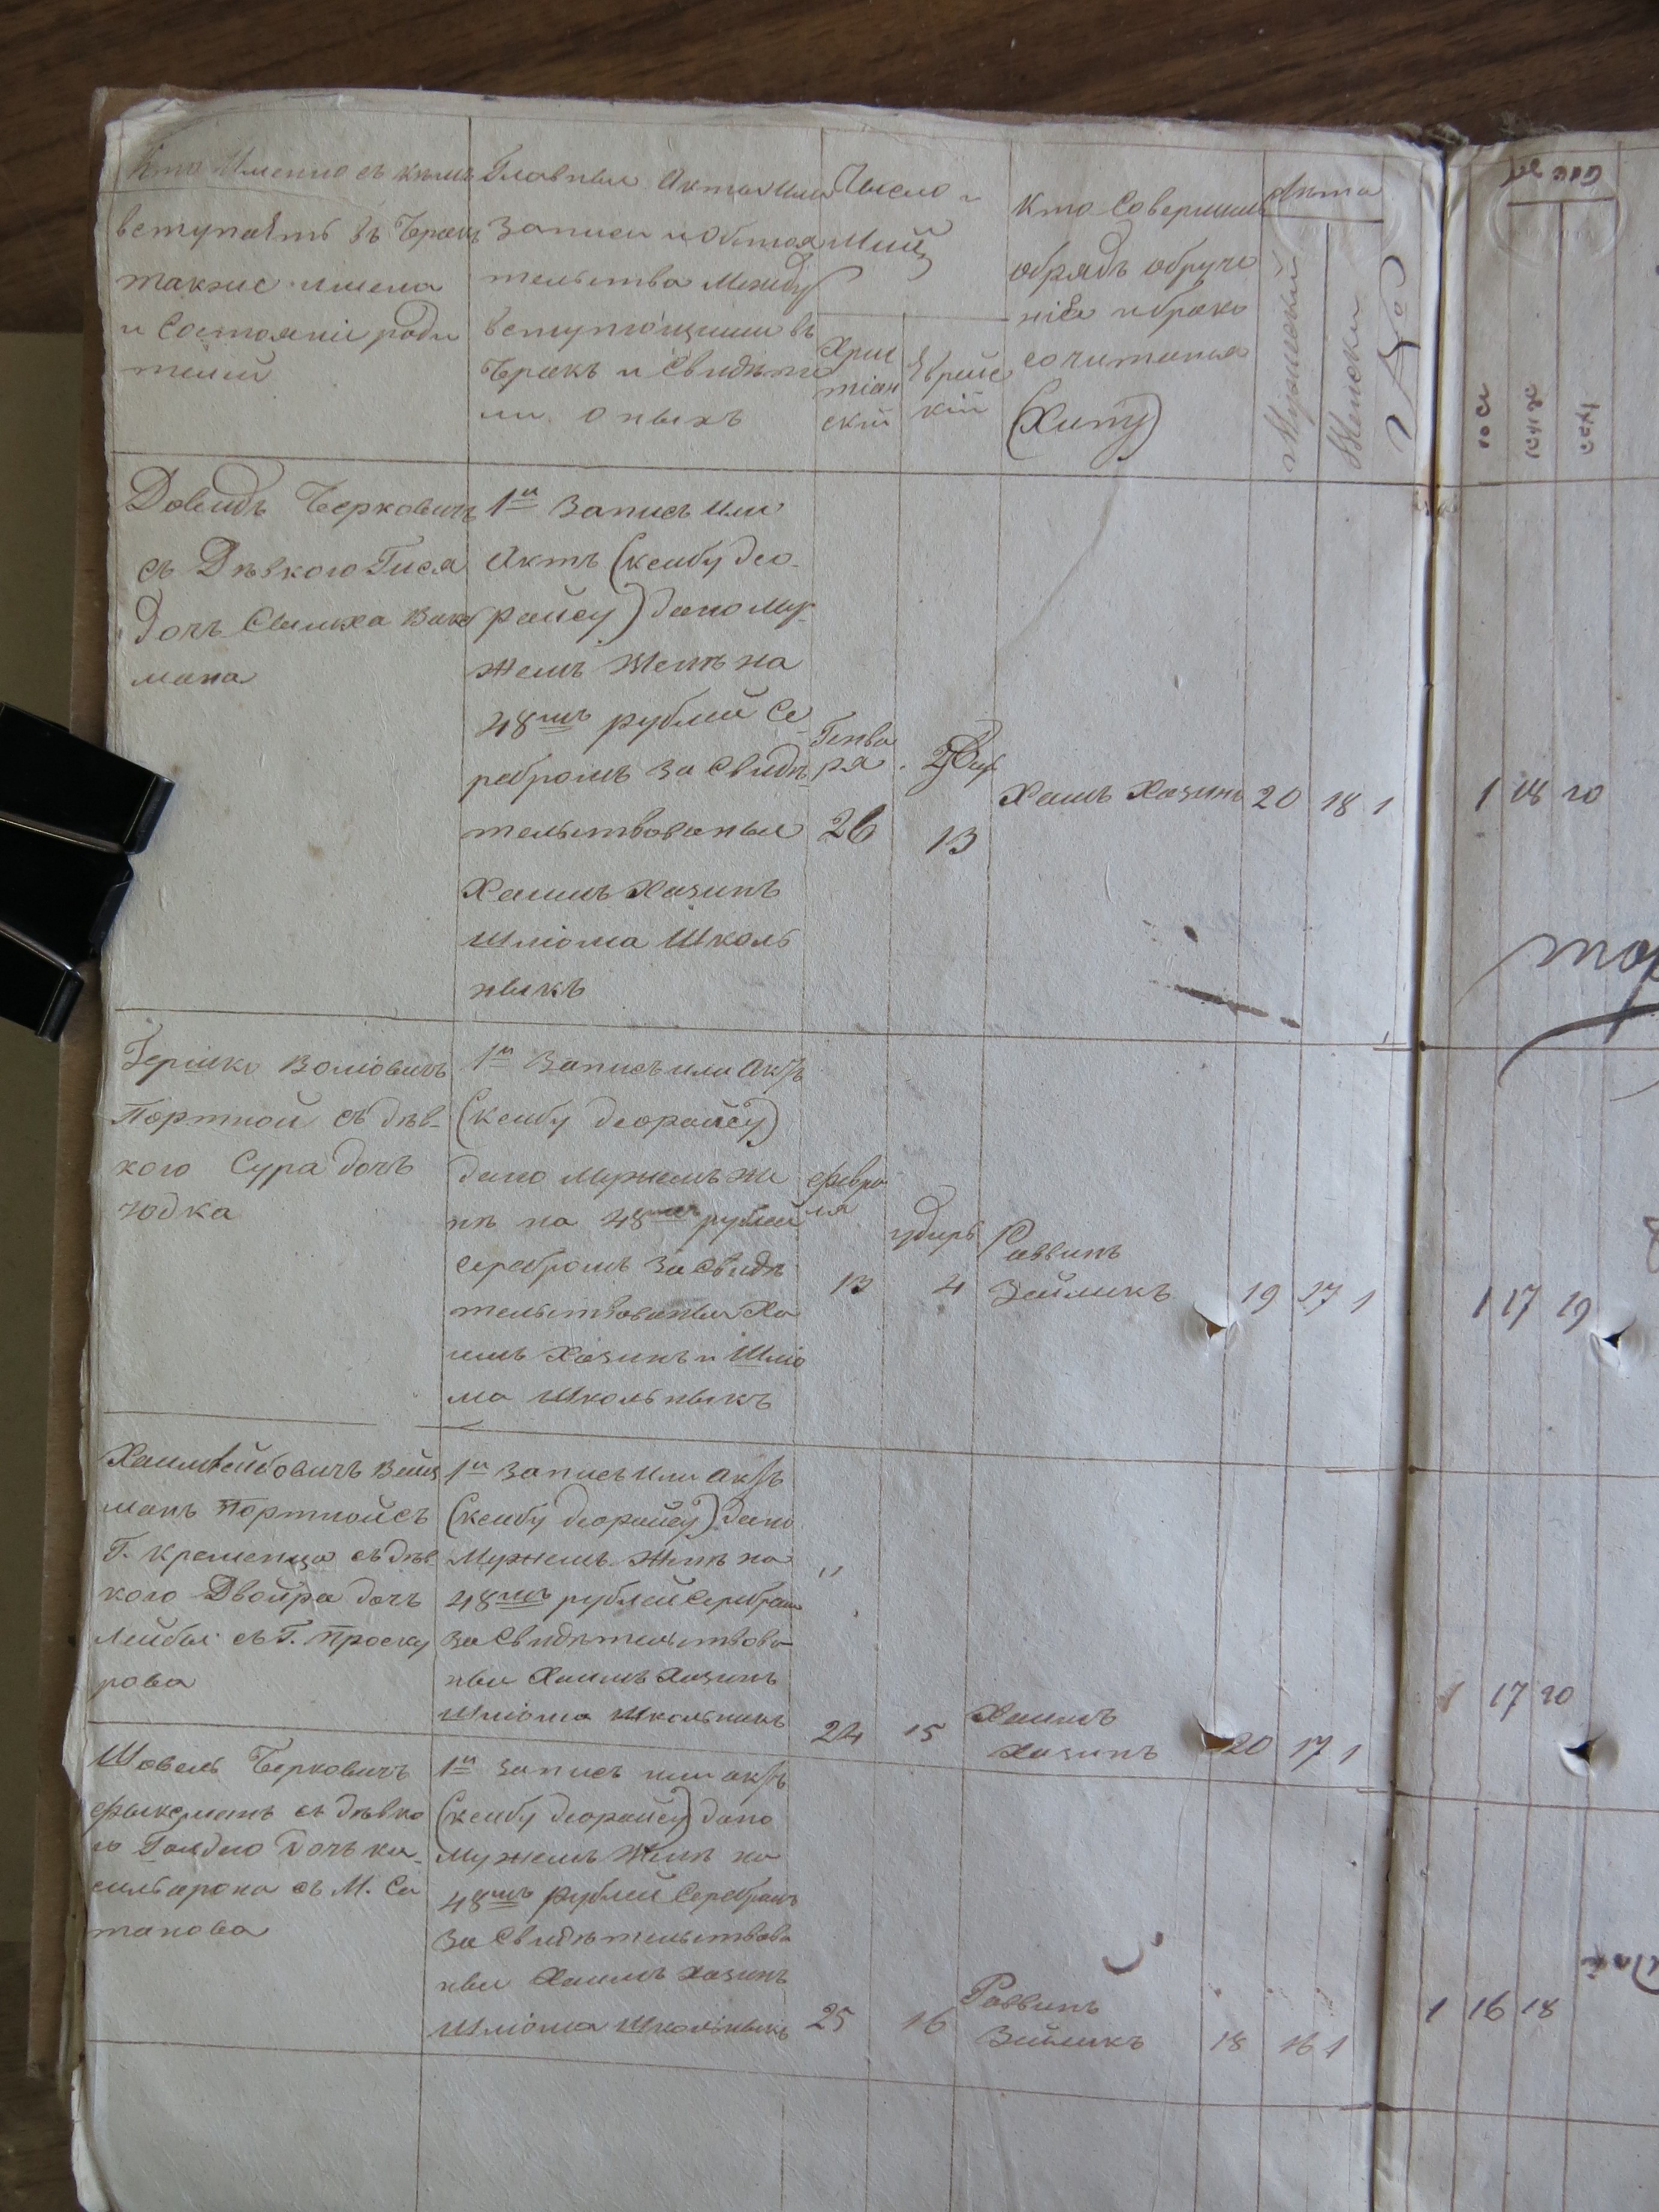 Кто Именно съ кемъ
вступаетъ въ Бракъ
также имена
и Состояніе роди
телей
Главныи Акты или
Записи и Обстоя
тельства Между
вступающими въ
Бракъ и Свидете
ли оныхъ
Число и
Христіан
скій
Еврейс
кій
Кто Совершилъ
обрядъ обруче
нія и брако
сочитанія
(Хипу)
Лета
Мужеский
Женски
№
Довидъ Берковичъ
съ Девкою Гися
дочъ Смилка Вак
мана
1й Запись или
Актъ (ксибу део-
райсу) дано Му-
жемъ Жене на
48мъ рублей Се
ребромъ За Свиде
тельствованыи
Хаимъ Хазинъ
Шліома Школь
ныкъ
Генва
ря
26
13
Хаимъ Хазинъ
20 18 1
Гершко Воліовичъ
Портной съ дев-
кою Сура дочъ
Юдка
1й Запись или Актъ
(ксибу деорайсу)
дано Мужемъ Же
не на 48мъ рублей
серебромъ За Свиде
тельствованыи Ха
имъ Хазинъ и Шліо
ма Школьныкъ
февра
ля
13
4
Раввинъ
Зейликъ
19 17 1
Хаим Лейбовичъ Вайц
манъ Портной съ
Г. Кременца съ дев
кою Двойра дочъ
Лейбы съ Г. Проску
рова
1й Запись Или Актъ
(ксибу деорайсу) дано
Мужемъ Жене на
48мъ рублей Серебром
За Свидетельствова
ныи Хаимъ Хазинъ
Шліома Школьникъ
24
15
Хаимъ
Хазинъ
20 17 1
Шовель Берковичъ
съ девко
ю Голдою дочъ
съ М. Са
танова
1й Запись или актъ
(ксибу деорайсу) дано
Мужемъ Жене на
48мъ Рублей Серебромъ
За Свидетельствова
ныи Хаимъ Хазинъ
Шліома Школьныкъ
25
16
Раввинъ
Зейликъ
18 16 1
1 18 20
1 17 19
1 17 20
1 16 18